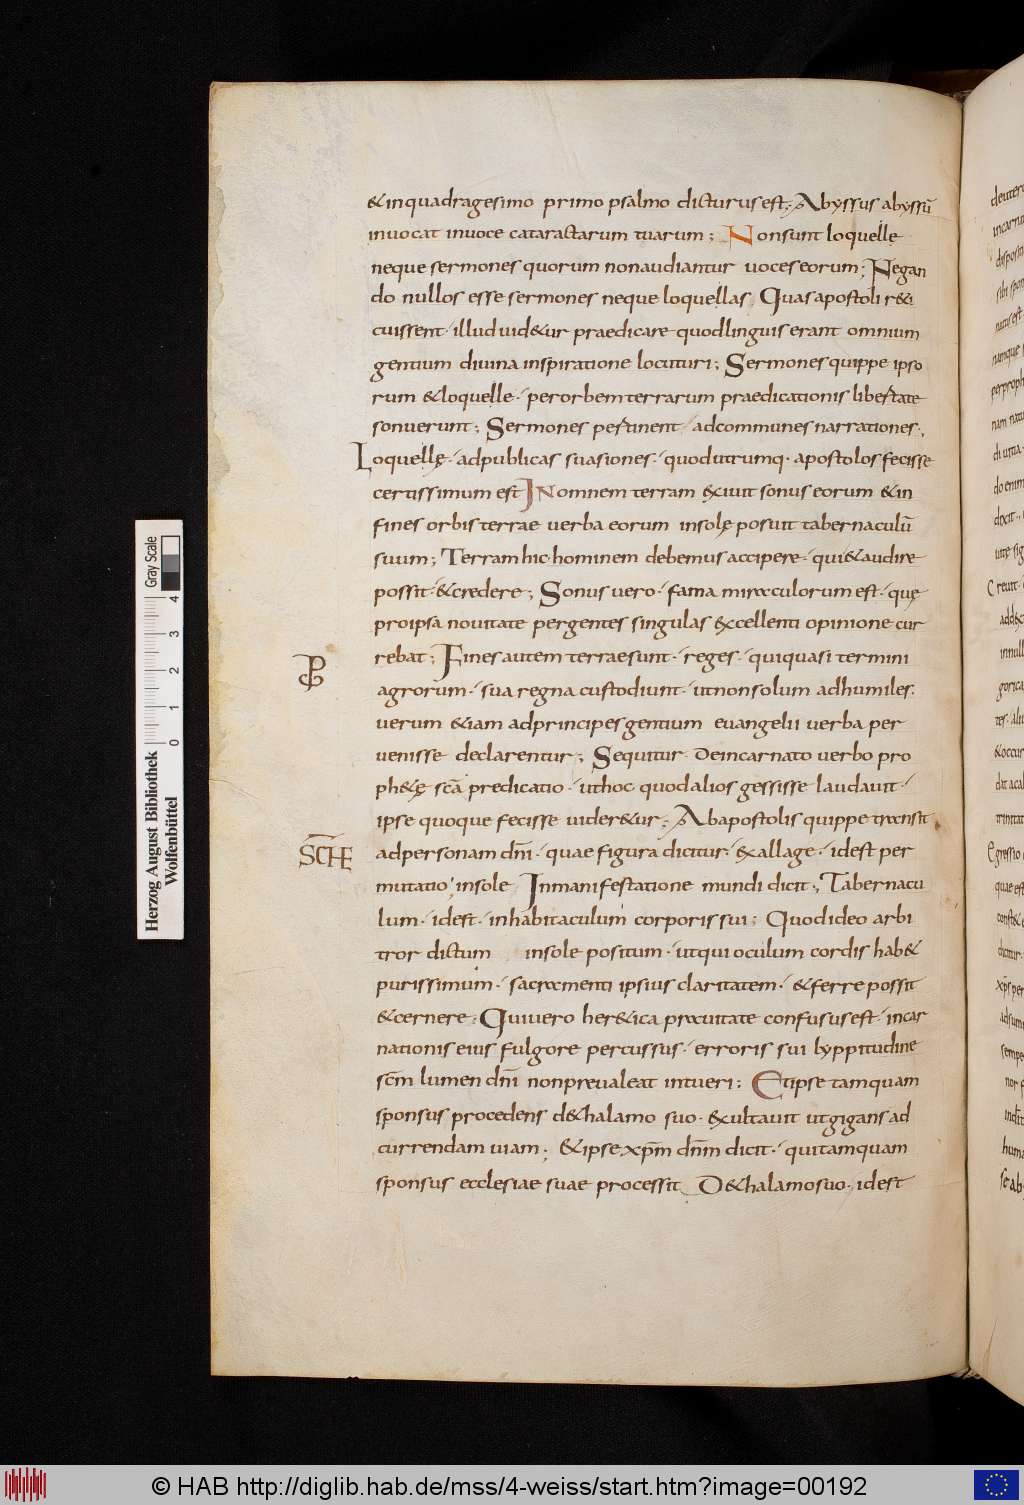 &inquadragesimo primo psalmo dicturusest; Abyssus abyssū
inuocat inuoce cataractarum tuarum; Nonsunt loquellę
neque sermones quorum nonaudiantur uoceseorum; Negan
do nullos esse sermones neque loquellas Quasapostoli r&i
cuissent· illud uid&ur praedicare quodlinguis erant omnium
gentium diuina inspiratione locuturi; Sermones quippe ipso
rum &loquelle· perorbem terrarum praedicationis libertate
sonuerunt; Sermones pertinent· adcommunes narrationes·,
Loquellę· adpublicas suasiones· quodutrumq· apostolos fecisse
certissimum est INomnem terram exiuit sonus eorum &in
fines orbis terrae uerba eorum insolę posuit tabernaculū
suum; Terram hic·hominem debemus accipere· qui&audire
possit·&credere; Sonus uero· fama miraculorum est· quę
proipsa nouitate pergentes singulas excellenti opinione cur
rebat; Fines autem terraesunt· reges· quiquasi termini
agrorum· sua regna custodiunt· utnonsolum adhumiles·
uerum &iam adprincipes gentium euangelii uerba per
uenisse declarentur; Sequitur Deincarnato uerbo pro
ph&ę scā predicatio· uthoc quodalios gessisse laudauit·
ipse quoque fecisse uider&ur; Abapostolis quippe transit
SCHE adpersonam dn̄i· quae figura dicitur· exallage· idest per
mutatio; insole Inmanifestatione mundi dicit·, Tabernacu
lum· idest· inhabitaculum corporis sui; Quodideo arbi
tror dictum insole positum· utqui oculum cordis hab&
purissimum· sacramenti ipsius claritatem· &ferre possit
&cernere; Quiuero her&ica prauitate confususest· incar
nationis eius fulgore percussus· erroris sui lyppitudine
scm̄ lumen dn̄i nonpreualeat intueri; Etipse tamquam
sponsus procedens d&halamo suo· exultauit utgigans ad
currendam uiam; &ipse xp̄m dn̄m dicit· quitamquam
sponsus ecclesiae suae processit D&halamosuo· idest
Gray Scale
0 1 2 3 4
Herzog August Bibliothek
Wolfenbüttel
© HAB http://diglib.hab.de/mss/4-weiss/start.htm?image=00192